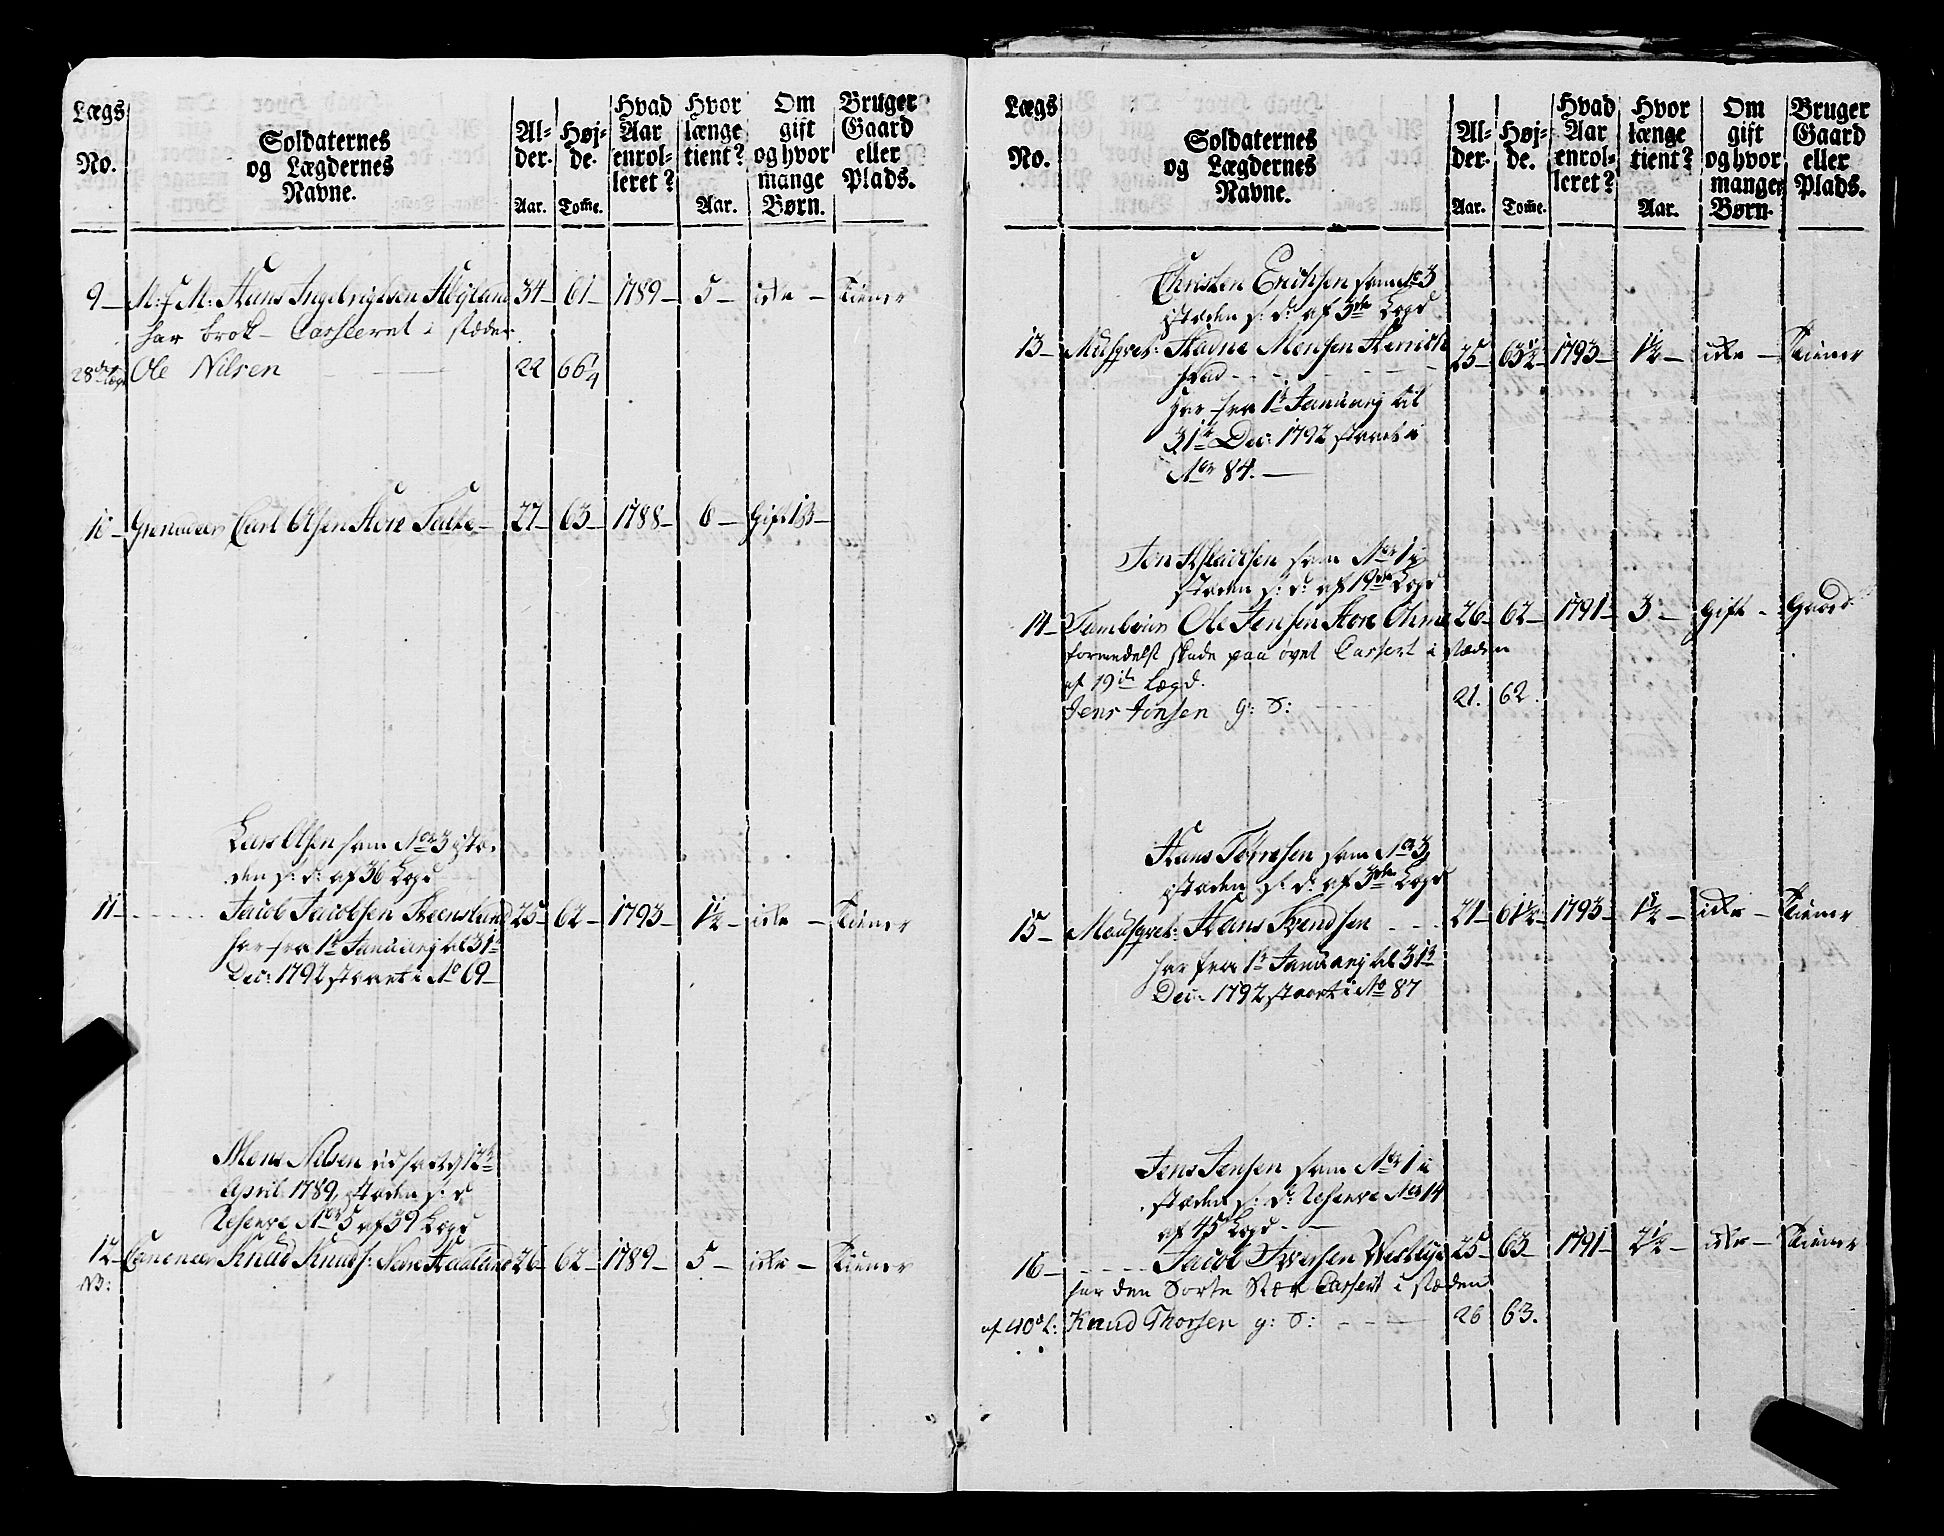 Lægs No.
Soldaternes og Lægdernes Navne.
Al-der. Aar.
Høj-de. Tom̃e.
Hvad Aar enrol-leret?
Hvor længe tient? Aar.
Om gift og hvor mange Børn.
Bruger Gaard eller Plads.
9 M: f M: Hans 34 61 1789 5 ikke tiener
har brok Casseret i stæden
28de Lægd Ole Nilsen 22 66 1/4
10 Grenadeer Carl Olsen Store 27 63 1788 6 Gift 1 B
Lars Olsen som No 3 i stæ-
den s: d: af 36 Legd
11 Jacob Jacobsen 25 62 1793 1 1/2 ikke tiener
har fra 1te Januarj til 31te
Dec: 1792 staaet i No 69
Mons Nilsen udsat d 12te
April 1789, i stæden s: d
Reserve No 5 af 39 Legd
12 Canoneer Knud Knuds: 26 62 1789 5 ikke tiener
NB:
Lægs No.
Soldaternes og Lægdernes Navne.
Al-der. Aar.
Høj-de. Tom̃e.
Hvad Aar enrol-leret?
Hvor længe tient? Aar.
Om gift og hvor mange Børn.
Bruger Gaard eller Plads.
Christen Erichsen som No 3
i stæden s: d: af 3die Legd
13 Musqvet: Monsen 25 63 1/2 1793 1 1/2 ikke tiener
har fra 1te Januarj til
31te Dec: 1792 staaet i
No 84.
Jon som No 1 i
stæden s: d: af 19de Legd
14 Tambour Ole Jensen Store 26 62 1791 3 Gift Gaard
formedelst skade paa øyet Cassert i stæden
af 19de Lægd.
Jens Jonsen g: d: 21. 62.
Hans Tørresen som No 3
i stæden s: d: af 3die Legd
15 Mousqvet: Hans Svendsen 21 61 1/2 1793 1 1/2 ikke tiener
har fra 1te Januarj til 31te
Dec: 1792 staaet i No 87
Jens Jensen som No 1 i
stæden s: d: Reserve No 14
af 45 Legd
16 Jacob Iversen 25 63 1791 2 1/2 ikke tiener
har den Sorte Stær Cassert i stæden
af 40de L: Knud Thorsen g: d: 26 63.